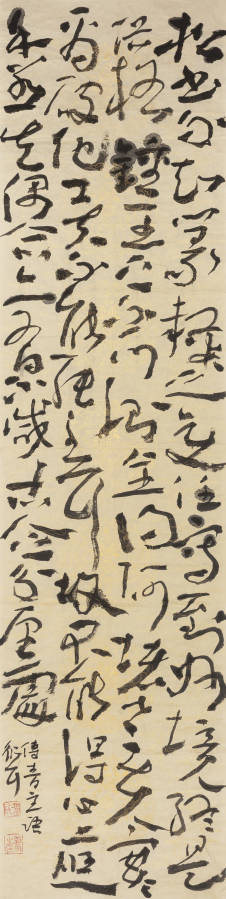 楷書不知篆隸之變任寫到妙境終是
俗格鍾王之不可測處全得自阿堵老夫實實
看破地工夫不能純至耳故不能得心應
手若其偶合亦有不減古人分厘處
傅青主語